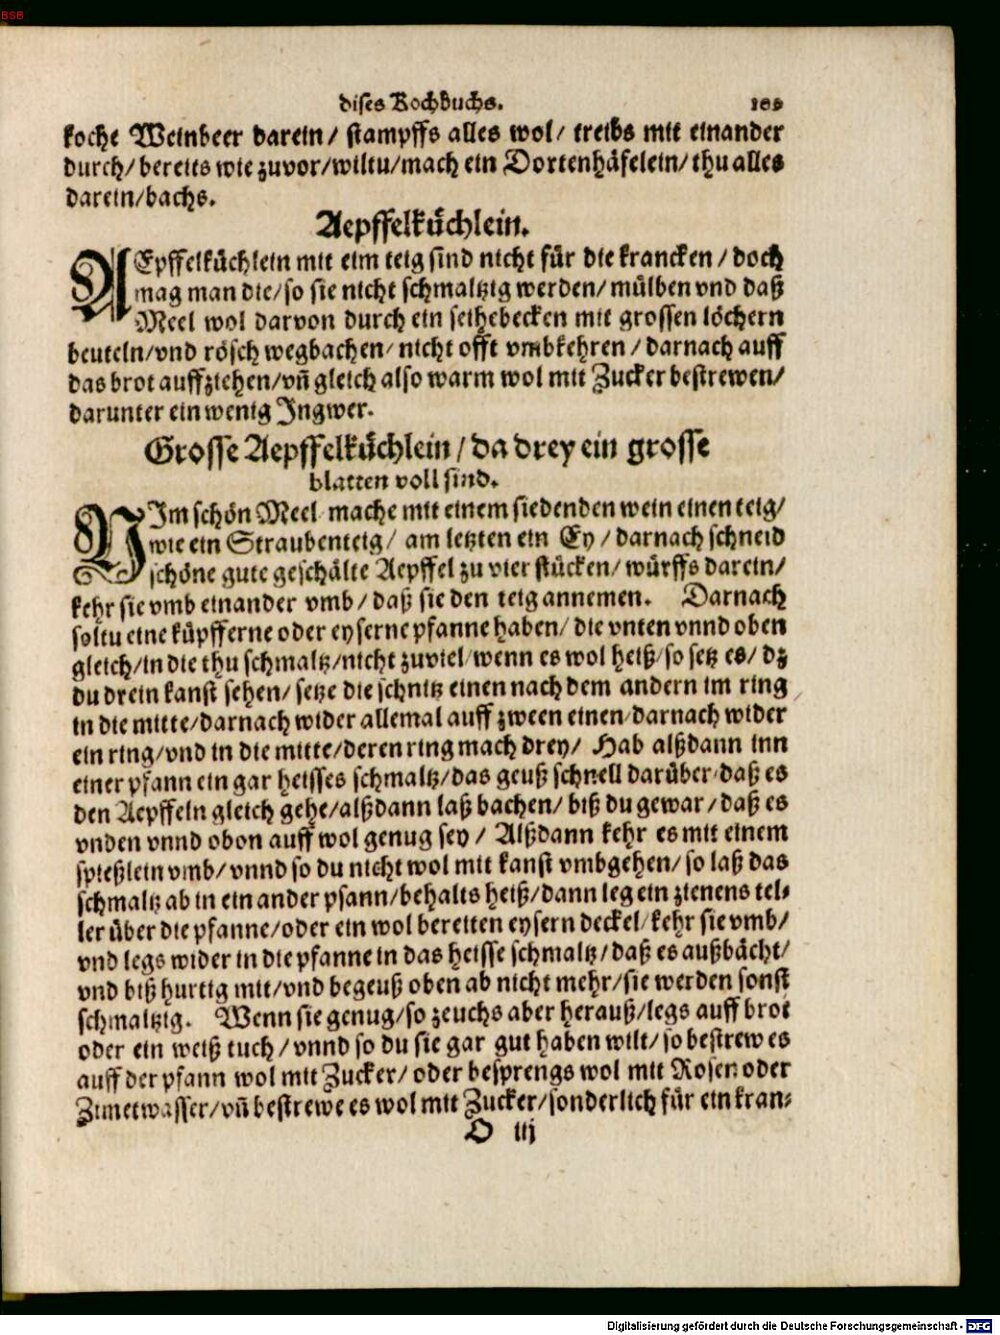 BSB
dises Kochbuchs.
koche Weinbeer darein/ stampffs alles wol/ treibs mit einander
durch/ bereits wie zuvor/wiltu/mach ein Dortenhäfelein/thu alles
darein/bachs.
Aepffelküchlein.
AEpffelküchlein mit eim teig sind nicht für die krancken / doch
mag man die/so sie nicht schmaltzig werden/ mülben vnd daß
Meel wol darvon durch ein seihebecken mit grossen löchern
beuteln/vnd rösch wegbachen/ nicht offt vmbkehren / darnach auff
das brot auffziehen/vñ gleich also warm wol mit Zucker bestrewen/
darunter ein wenig Ingwer.
Grosse Aepffelküchlein / da drey ein grosse
blatten voll sind.
NIm schön Meel mache mit einem siedenden wein einen teig/
wie ein Straubenteig/ am letzten ein Ey / darnach schneid
schöne gute geschälte Aepffel zu vier stücken/ würffs darein/
kehr sie vmb einander vmb/ daß sie den teig annemen. Darnach
soltu eine küpfferne oder eyserne pfanne haben/ die vnten vnnd oben
gleich/in die thu schmaltz/nicht zuviel/wenn es wol heiß/so setz es/ dz
du drein kanst sehen/ setze die schnitz einen nach dem andern im ring
in die mitte/darnach wider allemal auff zween einen/darnach wider
ein ring/vnd in die mitte/deren ring mach drey/ Hab alßdann inn
einer pfann ein gar heisses schmaltz/das geuß schnell darüber/daß es
den Aepffeln gleich gehe/alßdann laß bachen/ biß du gewar/daß es
vnden vnnd obon auff wol genug sey / Alßdann kehr es mit einem
spießlein vmb/vnnd so du nicht wol mit kanst vmbgehen/so laß das
schmaltz ab in ein ander pfann/behalts heiß/dann leg ein zienens tel-
ler über die pfanne/oder ein wol bereiten eysern deckel/kehr sie vmb/
vnd legs wider in die pfanne in das heisse schmaltz/daß es außbächt/
vnd biß hurtig mit/vnd begeuß oben ab nicht mehr/sie werden sonst
schmaltzig. Wenn sie genug/so zeuchs aber herauß/legs auff brot
oder ein weiß tuch/vnnd so du sie gar gut haben wilt/so bestrew es
auff der pfann wol mit Zucker/ oder besprengs wol mit Rosen oder
Zimetwasser/vñ bestrewe es wol mit Zucker/sonderlich für ein kran-
O iij
Digitalisierung gefördert durch die Deutsche Forschungsgemeinschaft - DFG